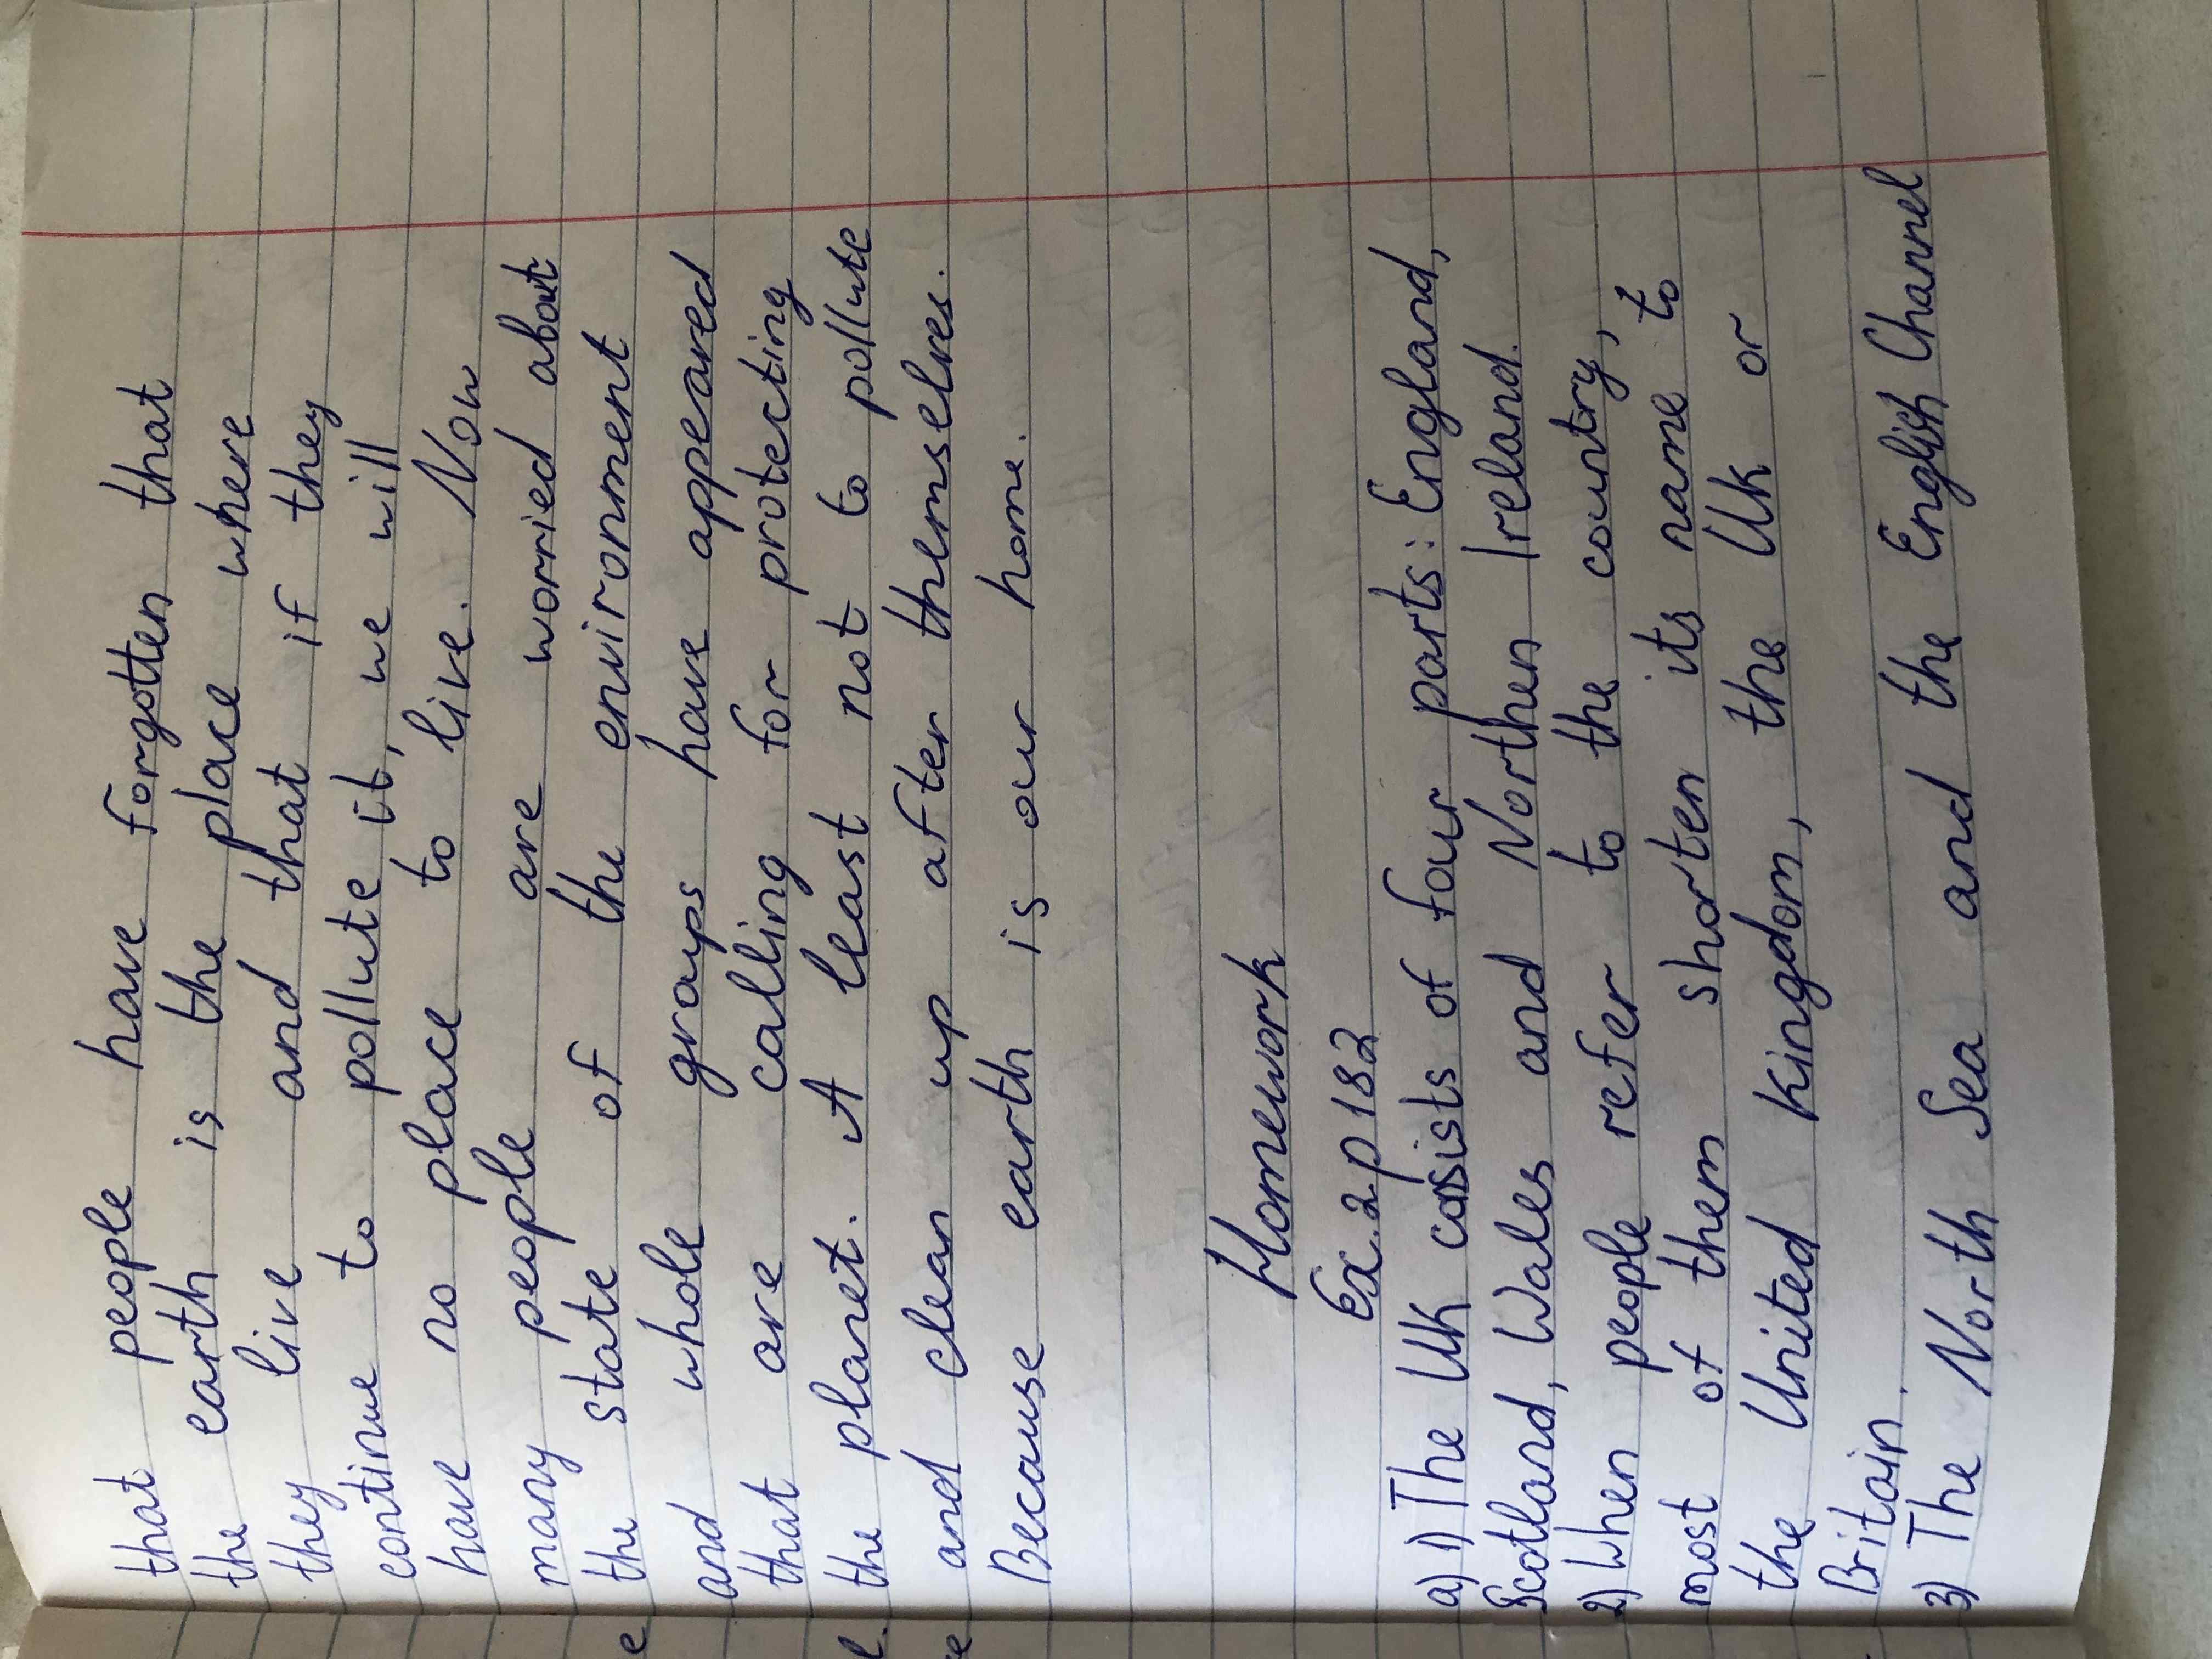 that people have forgotten that
the earth is the place where
they live and that if they
continue to pollute it, we will
have no place to live. Now
many people are worried about
the state of the environment
and whole groups have appeared
that are calling for protecting
the planet. A least not to pollute
and clean up after themselves.
Because earth is our home.
Homework
Ex.2 p 182
a) 1) The UK cosists of four parts: England,
Scotland, Wales and Northen Ireland.
2) When people refer to the country,
most of them shorten its name to
the United Kingdom, the UK or
Britain.
3) The North Sea and the English Channel